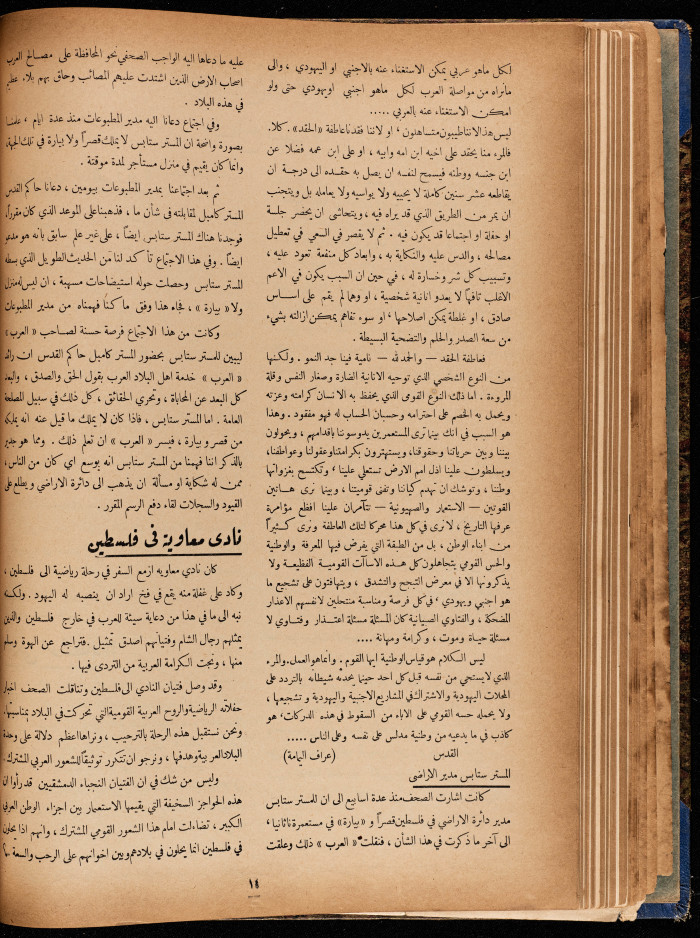 لكل ماهو غربي يمكن الاستغناء عنه بالاجنبي او اليهودي ، والى
مانراه من مواصلة العرب لكل ماهو اجنبي اويهودي حتى ولو
امكن الاستغناء عنه بالعربي .....
ليس هذا لاننا طيبون متساهلون ، او لاننا فقدنا عاطفة «الحقد» . كلا .
فالمرء منا يحقد على اخيه ابن امه وابيه ، او على ابن عمه فضلا عن
ابن جنسه ووطنه فيسمح لنفسه ان يصل به حقده الى درجة ان
يقاطعه عشر سنين كاملة لا يحييه ولا يواسيه ولا يعامله بل ويتجنب
ان يمر من الطريق الذي قد يراه فيه ، ويتحاشى ان يحضر جلسة
او حفلة او اجتماعا قد يكون فيه . ثم لا يقصر في السعي في تعطيل
مصالحه ، والدس عليه والنكاية به ، وابعاد كل منفعة تعود عليه ،
وتسبيب كل شر وخسارة له ، في حين ان السبب يكون في الاعم
الاغلب تافها لا يعدو انانية شخصية ، او وهما لم يقم على اساس
صادق ، او غلطة يمكن اصلاحها ، او سوء تفاهم يمكن ازالته بشيء
من سعة الصدر والحلم والتضحية البسيطة .
فعاطفة الحقد — والحمد لله — نامية فينا جد النمو . ولكنها
من النوع الشخصي الذي توحيه الانانية الضارة وصغار النفس وقلة
المروءة . اما ذلك النوع القومي الذي يحفظ به الانسان كرامته وعزته
ويحمل به الخصم على احترامه وحسبان الحساب له فهو مفقود . وهذا
هو السبب في انك بينما ترى المستعمرين يدوسوننا باقدامهم ، ويحولون
بيننا وبين حرياتنا وحقوقنا ، ويستهترون بكرامتنا وعقولنا وعواطفنا ،
ويسلطون علينا اذل امم الارض تستعلي علينا ، وتكتسح بغزواتها
وطننا ، وتوشك ان تهدم كياننا وتفنى قوميتنا ، وبينما نرى هاتين
القوتين — الاستعمار والصهيونية — تتآمران علينا افظع مؤامرة
عرفها التاريخ ، لانرى في كل هذا محركا لتلك العاطفة ونرى كثيراً
من ابناء الوطن ، بل من الطبقة التي يفرض فيها المعرفة والوطنية
والحس القومي يتجاهلون كل هذه الاساآت القومية الفظيعة ولا
يذكرونها الا في معرض التبجح والتشدق ، ويتهافتون على تشجيع ما
هو اجنبي ويهودي ، في كل فرصة ومناسبة منتحلين لانفسهم الاعذار
المضحكة ، والفتاوي الصبيانية كان المسئلة مسئلة اعتذار وفتاوي لا
مسئلة حياة وموت ، وكرامة ومهانة ....
ليس الكلام هو قياس الوطنية ايها القوم . وانما هو العمل . والمرء
الذي لايستحي من نفسه قبل كل احد حينما يحدثه شيطانه بالتردد على
المحلات اليهودية والاشتراك في المشاريع الاجنبية واليهودية و تشجيعها ،
ولا يحمله حسه القومي على الاباء من السقوط في هذه الدركات ، هو
كاذب في ما يدعيه من وطنية مدلس على نفسه وعلى الناس .....
القدس (عراف اليمامة)
المستر ستابس مدير الاراضي
كانت اشارت الصحف منذ عدة اسابيع الى ان للمستر ستابس
مدير دائرة الاراضي في فلسطين قصراً و «بيارة» في مستعمرة ناثانيا ،
الى آخر ما ذكرت في هذا الشأن ، فنقلت « العرب » ذلك وعلقت
عليه ما دعاها اليه الواجب الصحفي نحو المحافظة على مصالح العرب
اصحاب الارض الذين اشتدت عليهم المصائب وحاق بهم بلاء عظيم
في هذه البلاد .
وفي اجتماع دعانا اليه مدير المطبوعات منذ عدة ايام ، علمنا
بصورة واضحة ان المستر ستابس لا يملك قصراً ولا بيارة في تلك الجهة
وانما كان يقيم في منزل مستأجر لمدة موقتة .
ثم بعد اجتماعنا بمدير المطبوعات بيومين ، دعانا حاكم القدس
المستر كامبل لمقابلته في شأن ما ، فذهبنا على الموعد الذي كان مقرراً ،
فوجدنا هناك المستر ستابس ايضاً ، على غير علم سابق بانه هو مدعو
ايضاً . وفي هذا الاجتماع تأكد لنا من الحديث الطويل الذي بسطه
المستر ستابس وحصلت حوله استيضاحات مسهبة ، ان ليس له منزل
ولا « بيارة » ، فجاء هذا وفق ما كنا فهمناه من مدير المطبوعات
وكانت من هذا الاجتماع فرصة حسنة لصاحب « العرب »
ليبين للمستر ستابس بحضور المستر كامبل حاكم القدس ان رائد
« العرب » خدمة اهل البلاد العرب بقول الحق والصدق ، والبعد
كل البعد عن المحاباة ، وتحري الحقائق ، كل ذلك في سبيل المصلحة
العامة . اما المستر ستابس ، فاذا كان لا يملك ما قيل عنه انه يملكه
من قصر و بيارة ، فيسر « العرب » ان تعلم ذلك . ومما هو جدير
بالذكر اننا فهمنا من المستر ستابس انه يوسع اي كان من الناس ،
ممن له شكاية او مسألة ان يذهب الى دائرة الاراضي ويطلع على
القيود والسجلات لقاء دفع الرسم المقرر .
نادي معاوية في فلسطين
كان نادي معاويه ازمع السفر في رحلة رياضية الى فلسطين ،
وكاد على غفلة منه يقع في فخ اراد ان ينصبه له اليهود . ولكنه
نبه الى ما في هذا من دعاية سيئة للعرب في خارج فلسطين والذين
يمثلهم رجال الشام وفتيانهم اصدق تمثيل . فتراجع عن الهوة وسلم
منها ، ونجت الكرامة العربية من التردى فيها .
وقد وصل فتيان النادي الى فلسطين وتناقلت الصحف اخبار
حفلاته الرياضية والروح العربية القومية التي تحركت في البلاد بمناسبتها .
ونحن نستقبل هذه الرحلة بالترحيب ، ونراها اعظم دلالة على وحدة
البلاد العربية وهدفها ، ونرجو ان تتكرر توثيقاً للشعور العربي المشترك .
وليس من شك في ان الفتيان النجباء الدمشقيين قد رأوا ان
هذه الحواجز السخيفة التي يقيمها الاستعمار بين اجزاء الوطن العربي
الكبير ، تضاءلت امام هذا الشعور القومي المشترك ، وانهم اذا يحلون
في فلسطين انما يحلون في بلادهم وبين اخوانهم على الرحب والسعة
١٤